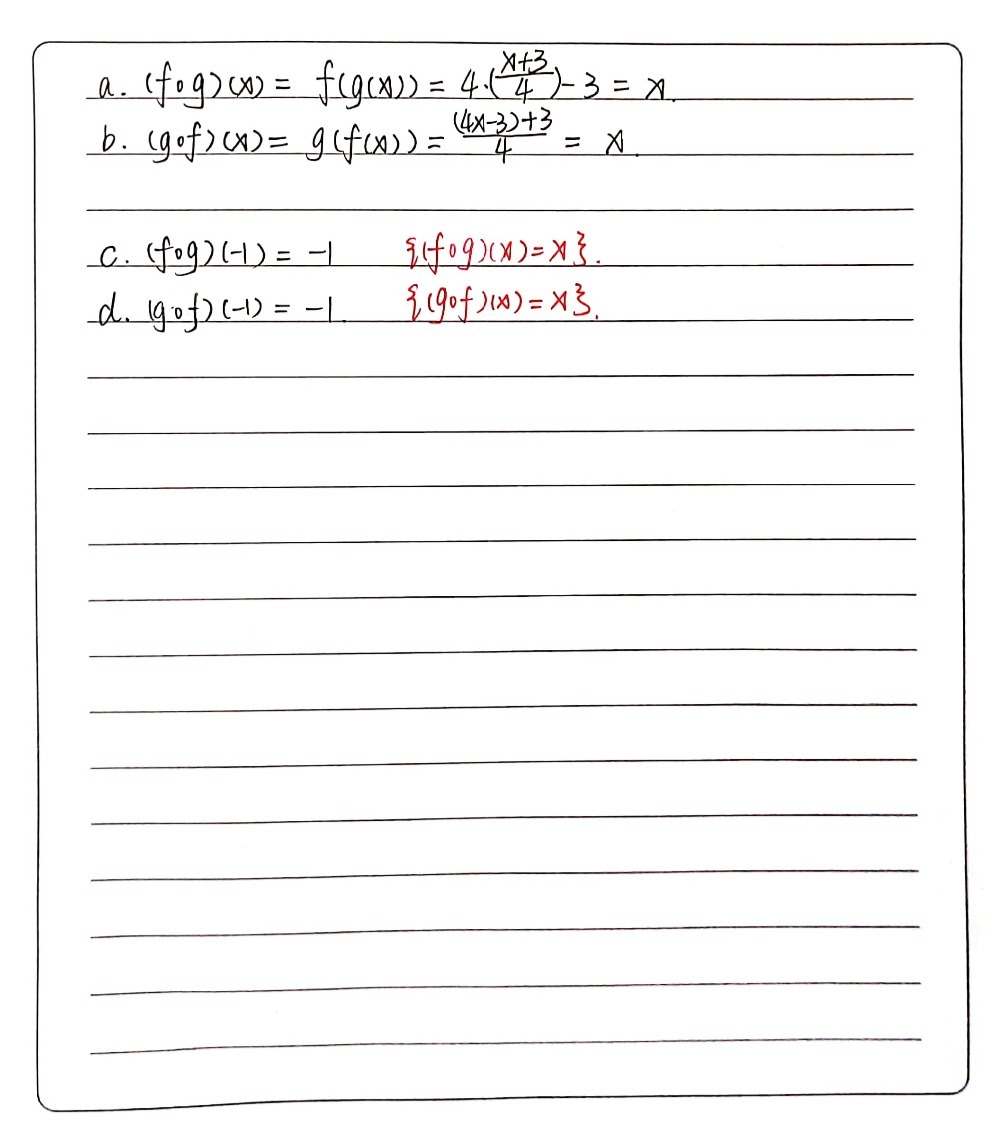 a. (f∘g)(x) = f(g(x)) = 4·(\frac{x+3}{4})-3 = x.
b. (g∘f)(x) = g(f(x)) = \frac{(4x-3)+3}{4} = x.
c. (f∘g)(-1) = -1 {(f∘g)(x)=x}.
d. (g∘f)(-1) = -1. {(g∘f)(x)=x}.